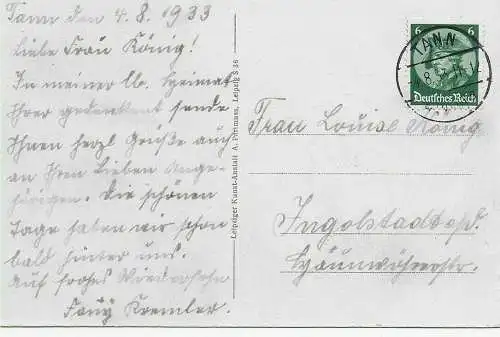 Tann den 4.8.1933
Liebe Frau König!
In meiner lb. Heimat
Ihrer gedenkent sende
Ihnen herzl Grüße auch
an Ihren lieben Ange-
hörigen. Die schönen
Tage haben wir schon
bald hinter uns.
Auf frohes Wiedersehn
Fany Kremler.
Leipziger Kunst-Anstalt A. Leipzig S 36
6 6
TANN
Deutsches Reich
Frau Louise König
Ingolstadt a/d.